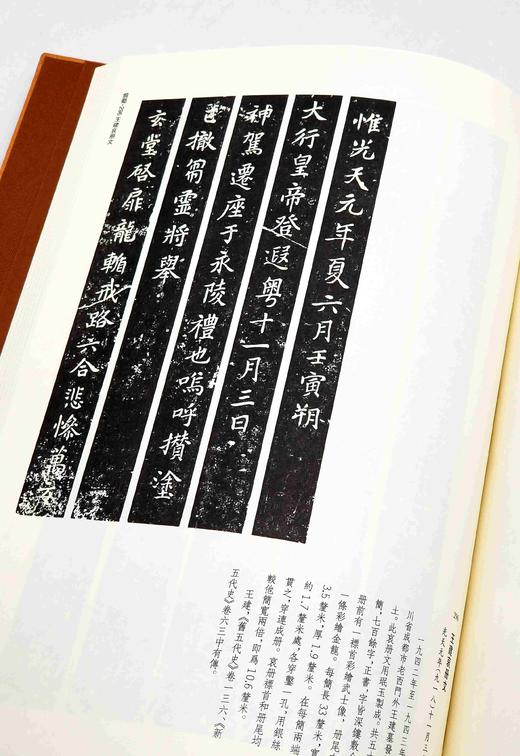 惟光天元年夏六月壬寅朔
大行皇帝登遐粤十一月三日
神駕遷座于永陵禮也嗚呼攢塗
撤芻靈將舉
玄堂啓扉龍輴戒路六合悲慘萬
王建哀册文
王建哀册文
光天元年(九一八)十一月
一九四二年至一九四三
川省成都市老西門外王建墓發
土。此哀册文用珉玉製成。共五
簡,七百餘字,正書,字皆深鏤敷
册前有一標首彩繪武士像,册尾
一條彩繪金龍。每簡長33釐米,寬
3.5釐米,厚1.9釐米。在每簡兩端
約1.7釐米處,各穿鑿一孔,用銀絲
貫之,穿連成册。哀册標首和册尾均
較他簡寬兩倍,即爲10.6釐米。
王建,《舊五代史》卷一三六、《新
五代史》卷六三中有傳。